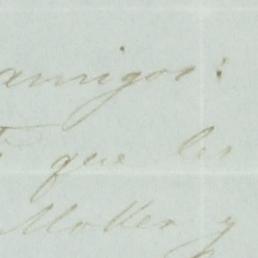 amigos:
que les
Moller y